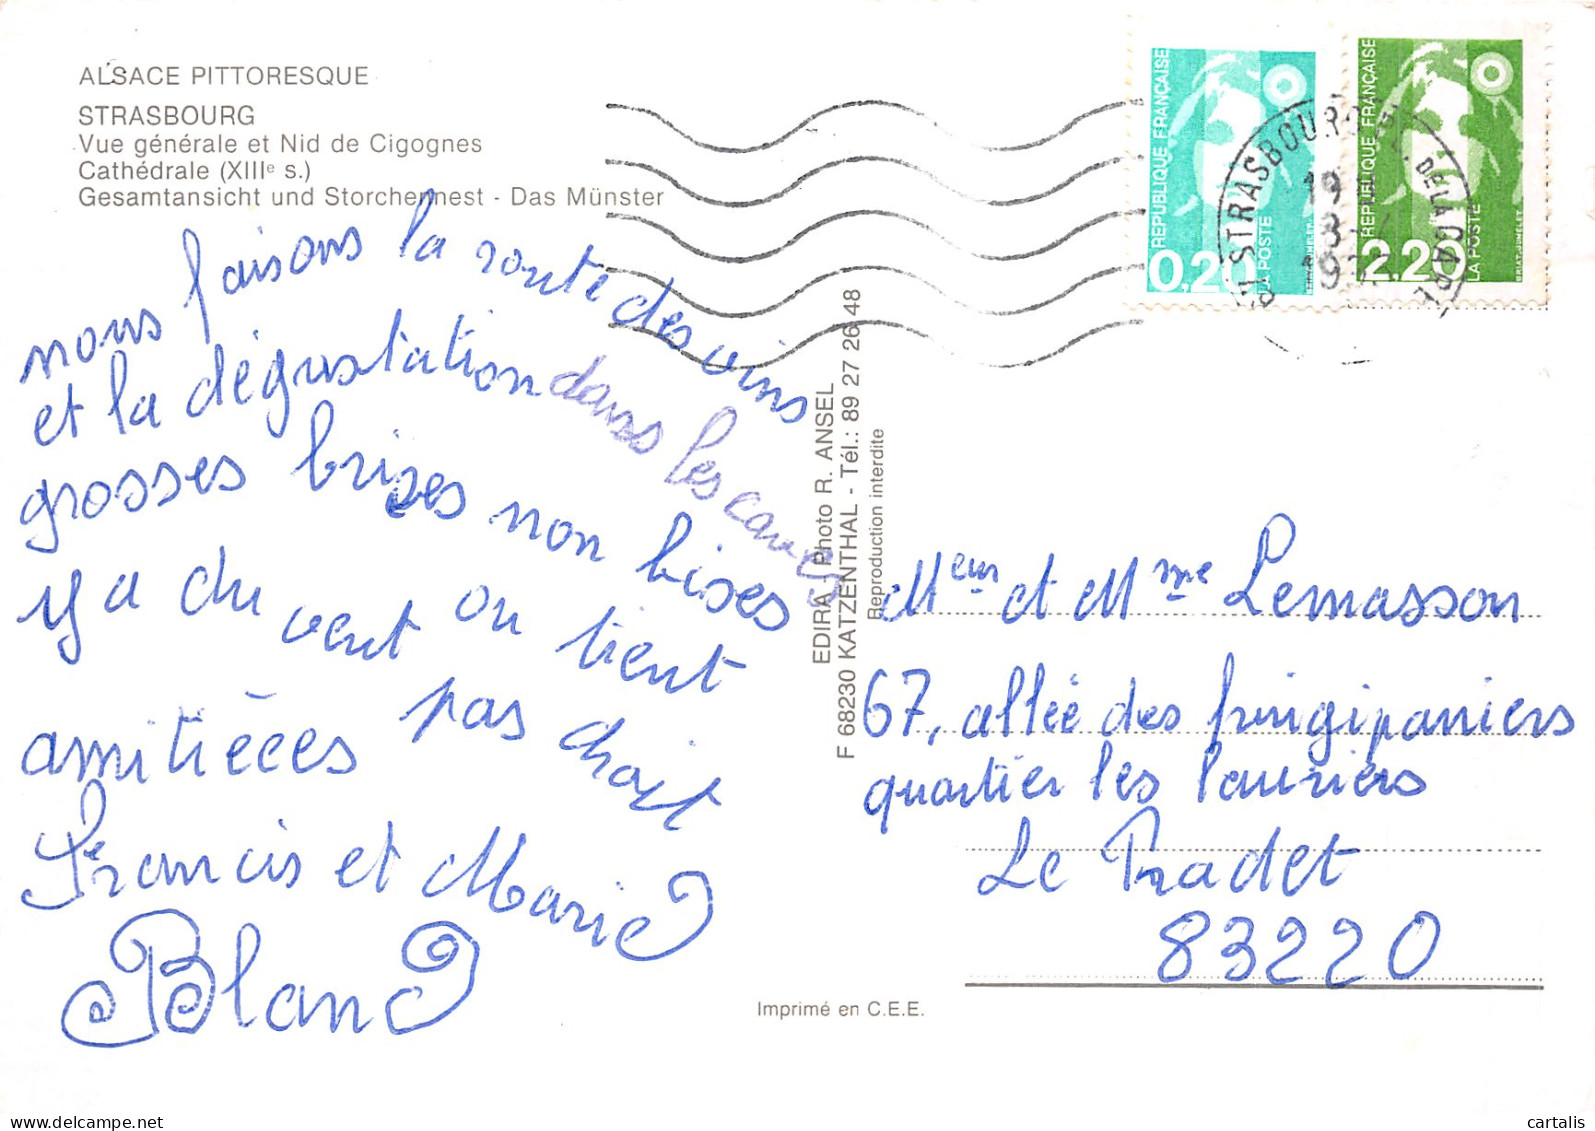 ALSACE PITTORESQUE
STRASBOURG
Vue générale et Nid de Cigognes
Cathédrale (XIIIe s.)
Gesamtansicht und Storchennest - Das Münster
nous faisons la route des vins
et la dégustation dans les caves
grosses brises non bises
y a du vent on tient
amitièces pas droit
Francis et Marie
Blanc
EDIRA - Photo R. ANSEL
F 68230 KATZENTHAL - Tél.: 89 27 26 48
Reproduction interdite
Imprimé en C.E.E.
REPUBLIQUE FRANÇAISE
0,20
LA POSTE
REPUBLIQUE FRANÇAISE
2,20
LA POSTE
BRIAT-JUMELET
STRASBOURG
DE LA GARE
19
Meur et Mme Lemasson
67, allée des fringipaniers
quartier les lauriers
Le Pradet
83220
www.delcampe.net
cartalis